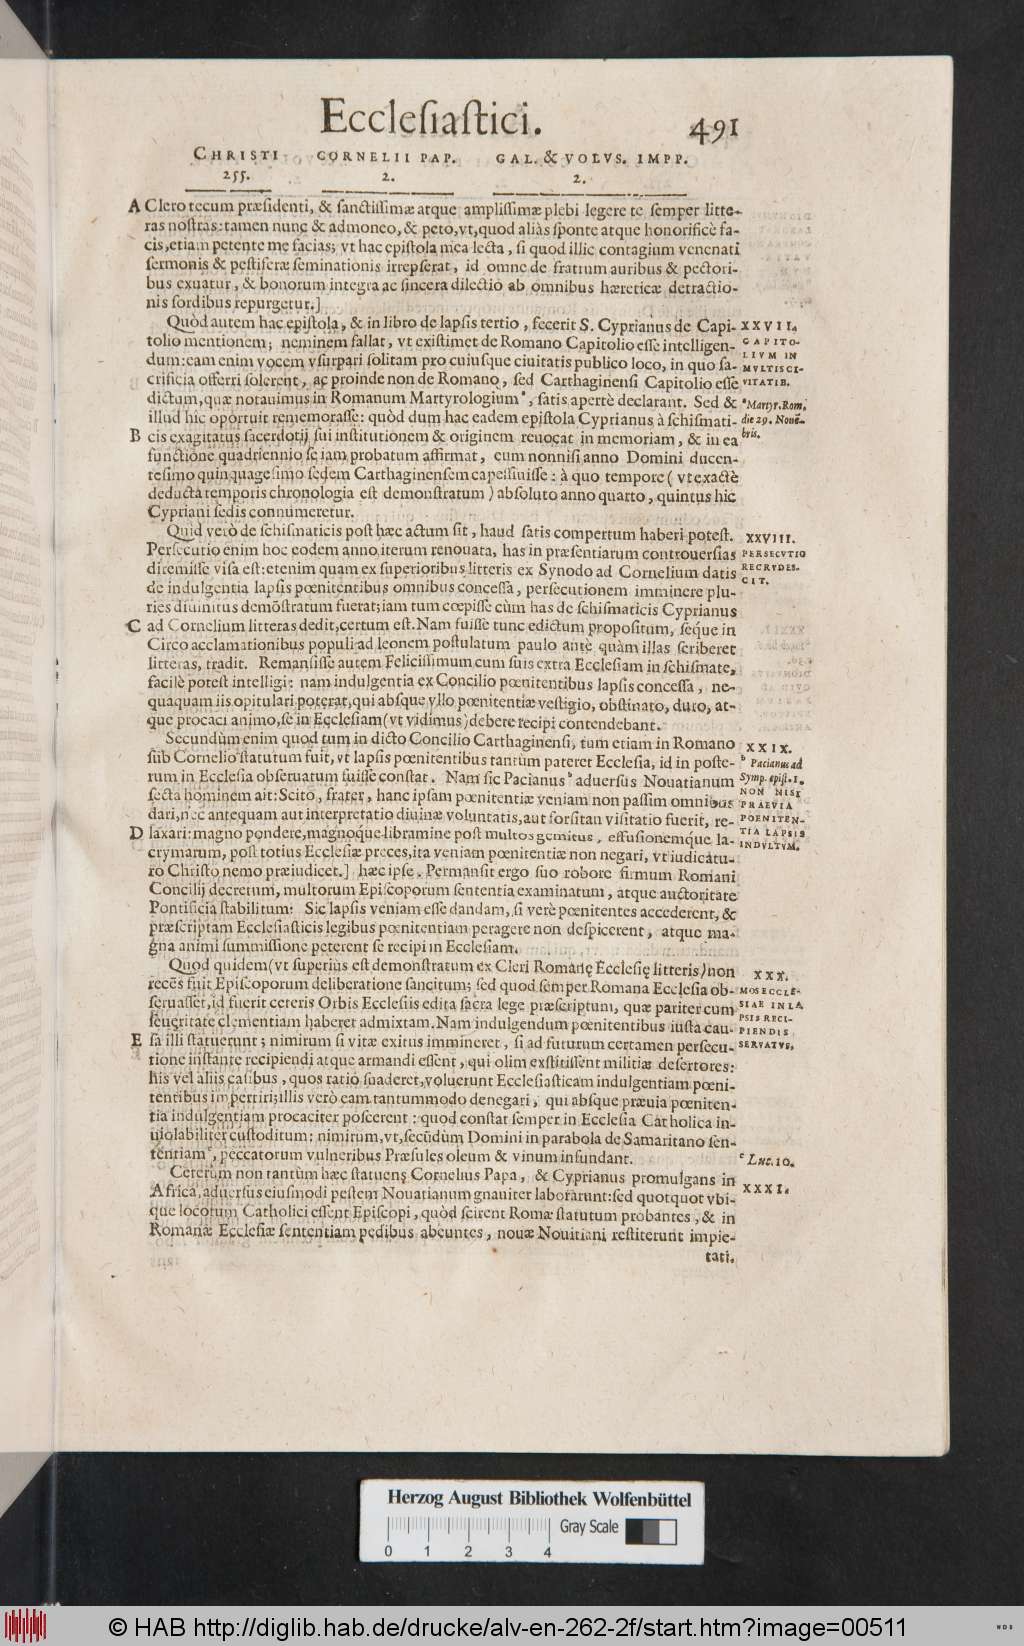 Ecclesiastici. 491
CHRISTI CORNELII PAP. GAL. & VOLVS. IMPP.
255. 2. 2.
A Clero tecum præsidenti, & sanctissimæ atque amplissimæ plebi legere te semper litte-
ras nostras: tamen nunc & admoneo, & peto, vt, quod aliàs sponte atque honorificè fa-
cis, etiam petente me facias; vt hac epistola mea lecta, si quod illic contagium venenati
sermonis & pestiferæ seminationis irrepserat, id omne de fratrum auribus & pectori-
bus exuatur, & bonorum integra ac sincera dilectio ab omnibus hæreticæ detractio-
nis sordibus repurgetur.]
Quòd autem hac epistola, & in libro de lapsis tertio, fecerit S. Cyprianus de Capi-
tolio mentionem; neminem fallat, vt existimet de Romano Capitolio esse intelligen-
dum: eam enim vocem vsurpari solitam pro cuiusque ciuitatis publico loco, in quo sa-
crificia offerri solerent, ac proinde non de Romano, sed Carthaginensi Capitolio esse
dictum, quæ notauimus in Romanum Martyrologium a, satis apertè declarant. Sed &
illud hic oportuit rememorasse: quòd dum hac eadem epistola Cyprianus à schismati-
B cis exagitatus sacerdotij sui institutionem & originem reuocat in memoriam, & in ea
functione quadriennio se iam probatum affirmat, eum nonnisi anno Domini ducen-
tesimo quinquagesimo sedem Carthaginensem capessiuisse: à quo tempore (vt exactè
deducta temporis chronologia est demonstratum) absoluto anno quarto, quintus hic
Cypriani sedis connumeretur.
XXVII.
CAPITO-
LIVM IN
MVLTIS CI-
VITATIB.
a Martyr. Rom.
die 29. Nouē-
bris.
Quid verò de schismaticis post hæc actum sit, haud satis compertum haberi potest.
Persecutio enim hoc eodem anno iterum renouata, has in præsentiarum controuersias
diremisse visa est: etenim quam ex superioribus litteris ex Synodo ad Cornelium datis
de indulgentia lapsis pœnitentibus omnibus concessa, persecutionem imminere plu-
ries diuinitus demōstratum fuerat; iam tum cœpisse cùm has de schismaticis Cyprianus
C ad Cornelium litteras dedit, certum est. Nam fuisse tunc edictum propositum, seque in
Circo acclamationibus populi ad leonem postulatum paulo ante quàm illas scriberet
litteras, tradit. Remansisse autem Felicissimum cum suis extra Ecclesiam in schismate,
facilè potest intelligi: nam indulgentia ex Concilio pœnitentibus lapsis concessa, ne-
quaquam iis opitulari poterat, qui absque vllo pœnitentiæ vestigio, obstinato, duro, at-
que procaci animo, se in Ecclesiam (vt vidimus) debere recipi contendebant.
XXVIII.
PERSECVTIO
RECRVDES-
CIT.
Secundùm enim quod tum in dicto Concilio Carthaginensi, tum etiam in Romano
sub Cornelio statutum fuit, vt lapsis pœnitentibus tantùm pateret Ecclesia, id in poste-
rum in Ecclesia obseruatum fuisse constat. Nam sic Pacianus b aduersus Nouatianum
secta hominem ait: Scito, frater, hanc ipsam pœnitentiæ veniam non passim omnibus
dari, nec antequam aut interpretatio diuinæ voluntatis, aut forsitan visitatio fuerit, re-
D laxari: magno pondere, magnoque libramine post multos gemitus, effusionemque la-
crymarum, post totius Ecclesiæ preces, ita veniam pœnitentiæ non negari, vt iudicatu-
ro Christo nemo præiudicet.] hæc ipse. Permansit ergo suo robore firmum Romani
Concilij decretum, multorum Episcoporum sententia examinatum, atque auctoritate
Pontificia stabilitum: Sic lapsis veniam esse dandam, si verè pœnitentes accederent, &
præscriptam Ecclesiasticis legibus pœnitentiam peragere non despicerent, atque ma-
gna animi summissione peterent se recipi in Ecclesiam.
XXIX.
b Pacianus ad
Symp. epist. 1.
NON NISI
PRAEVIA
POENITEN-
TIA LAPSIS
INDVLTVM.
Quod quidem (vt superius est demonstratum ex Cleri Romanę Ecclesię litteris) non
recēs fuit Episcoporum deliberatione sancitum; sed quod semper Romana Ecclesia ob-
seruasset, id fuerit ceteris Orbis Ecclesiis edita sacra lege præscriptum, quæ pariter cum
seueritate clementiam haberet admixtam. Nam indulgendum pœnitentibus iusta cau-
E sa illi statuerunt; nimirum si vitæ exitus immineret, si ad futurum certamen persecu-
tione instante recipiendi atque armandi essent, qui olim exstitissent militiæ desertores:
his vel aliis casibus, quos ratio suaderet, voluerunt Ecclesiasticam indulgentiam pœni-
tentibus impertiri; illis verò eam tantummodo denegari, qui absque præuia pœniten-
tia indulgentiam procaciter poscerent: quod constat semper in Ecclesia Catholica in-
uiolabiliter custoditum: nimirum, vt, secūdùm Domini in parabola de Samaritano sen-
tentiam c, peccatorum vulneribus Præsules oleum & vinum infundant.
XXX.
MOS ECCLE-
SIAE IN LA
PSIS RECI-
PIENDIS
SERVATVS.
c Luc. 10.
Ceterùm non tantùm hæc statuens Cornelius Papa, & Cyprianus promulgans in
Africa, aduersus eiusmodi pestem Nouatianum gnauiter laborarunt: sed quotquot vbi-
que locorum Catholici essent Episcopi, quòd scirent Romæ statutum probantes, & in
Romanæ Ecclesiæ sententiam pedibus abeuntes, nouæ Nouitiani restiterunt impie-
tati.
XXXI.
Herzog August Bibliothek Wolfenbüttel
Gray Scale
0 1 2 3 4
© HAB http://diglib.hab.de/drucke/alv-en-262-2f/start.htm?image=00511